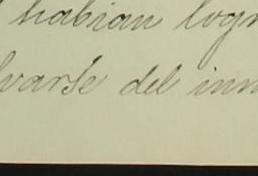 habian logr
varse del inm